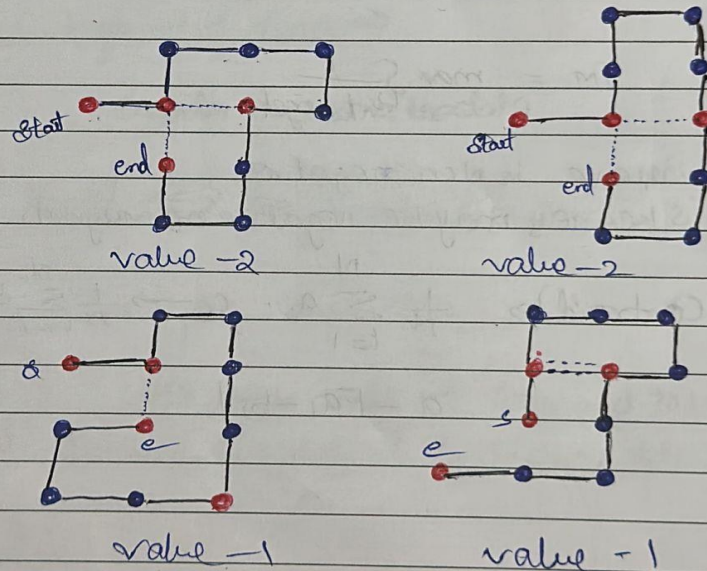 start
end
value -2
start
end
value -2
e
value -1
s
e
value -1